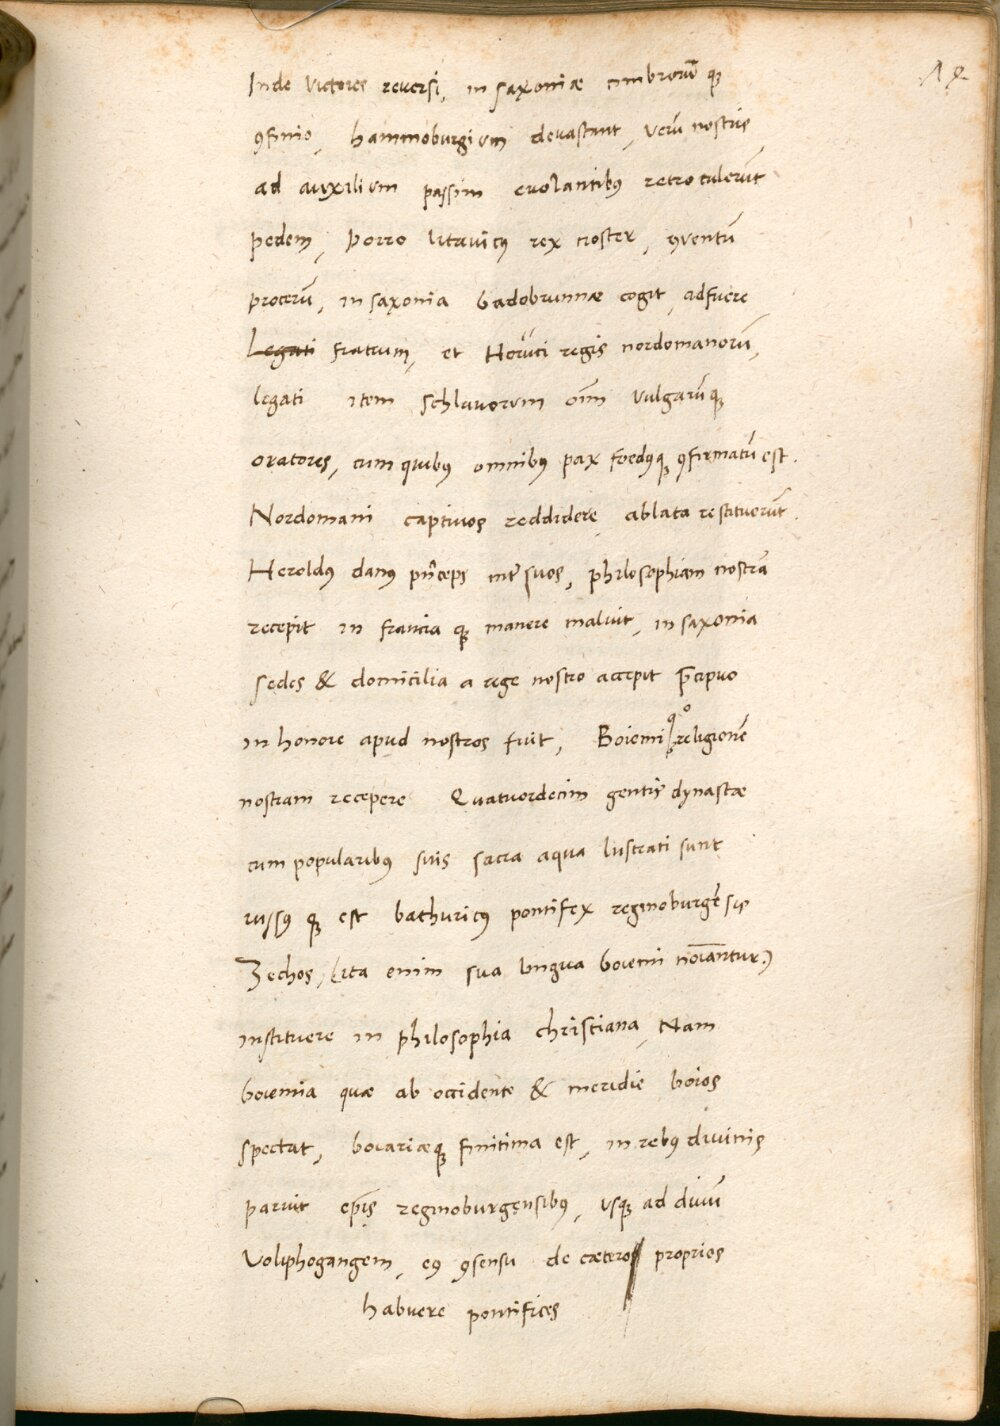 Inde victores reversi, in saxoniæ cimbrorū q̧
ꝯfinio, hammoburgium devastant, verū nostris
ad auxilium passim evolantibꝰ retro tulerūt
pedem, porro litavicꝰ rex noster, ꝯventū
procerū, in saxonia badobrunnæ cogit, adfuere
Legati fratrum, et Horuci regis nordomanorū,
legati item schlavorum oīm vulgarūq̧
oratores, cum quibꝰ omnibꝰ pax foedꝰq̧ ꝯfirmatū est.
Nordomani captivos reddidere ablata restituerūt.
Heroldꝰ danꝰ pn̄ceps int̄ suos, philosophiam nostrā
recepit in francia q̧ manere maluit, in saxonia
sedes & domicilia a rege nostro accepit p̄cipuo
in honore apud nostros fuit, Boiemi qͦ religionē
nostram recepere Quatuordecim gentis dynastæ
cum popularibꝰ suis sacra aqua lustrati sunt
iussꝰ q̧ est bathuricꝰ pontifex reginoburgēsis
Zechos, (ita enim sua lingua boiemi noīantur)
instituere in philosophia christiana, Nam
boiemia quæ ab occidente & meridie boios
spectat, boiariæq̧ finitima est, in rebꝰ divinis
paruit ep̄is reginoburgensibꝰ, usq̧ ad divū
Voliphogangem, eꝰ ꝯsensu de cæteros proprios
habuere pontifices